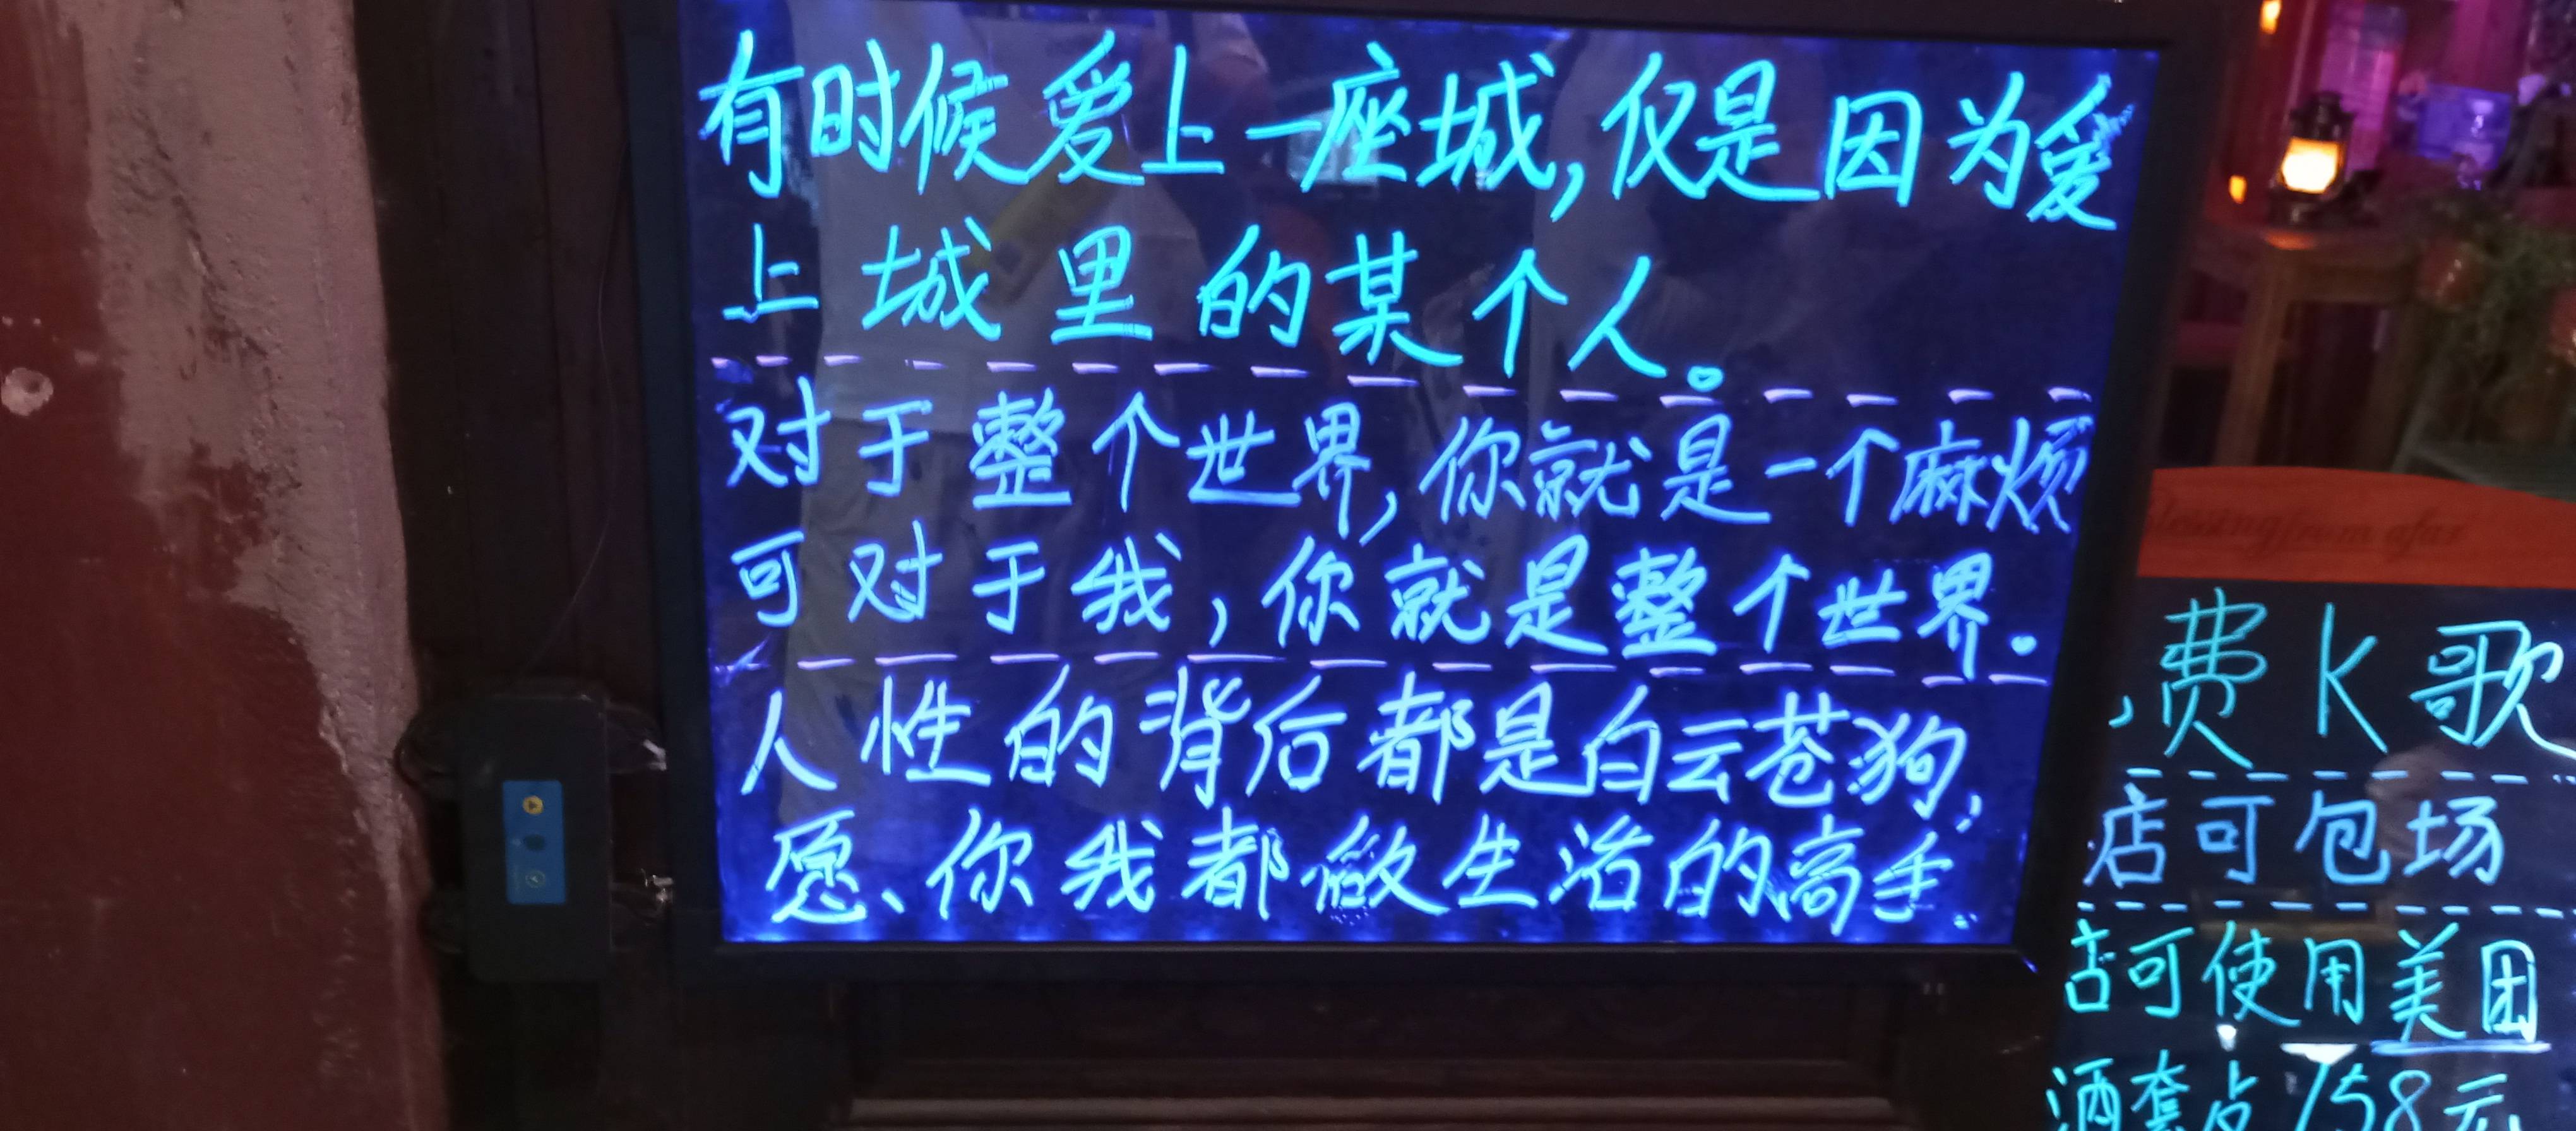 有时候爱上一座城,仅是因为爱
上城里的某个人。
对于整个世界,你就是一个麻烦
可对于我,你就是整个世界.
人性的背后都是白云苍狗,
愿、你我都做生活的高手.
blessing from afar
费K歌
店可包场
店可使用美团
酒套占158元